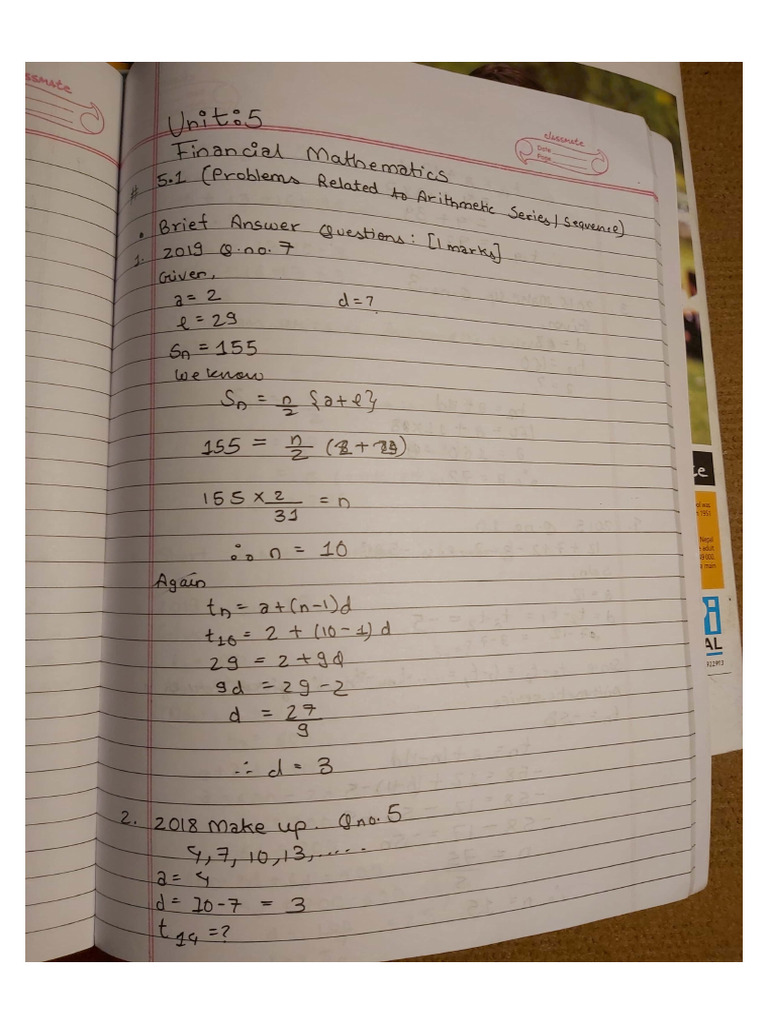 ssmate
classmate
Date
Page
Unit:5
Financial Mathematics
# 5.1 (Problems Related to Arithmetic Series/Sequence)
• Brief Answer Questions: [1 marks]
1. 2019 Q.no. 7
Given,
a = 2 d = ?
l = 29
Sn = 155
We know
Sn = n/2 {a+l}
155 = n/2 (2 + 29)
155 × 2/31 = n
∴ n = 10
Again
tn = a+(n-1)d
t10 = 2 + (10-1)d
29 = 2+9d
9d = 29-2
d = 27/9
∴ d = 3
2. 2018 Make up. Q no. 5
4, 7, 10, 13, .....
a = 4
d = 10-7 = 3
t14 = ?
te
1951
Nepal
adult
main
i
AL